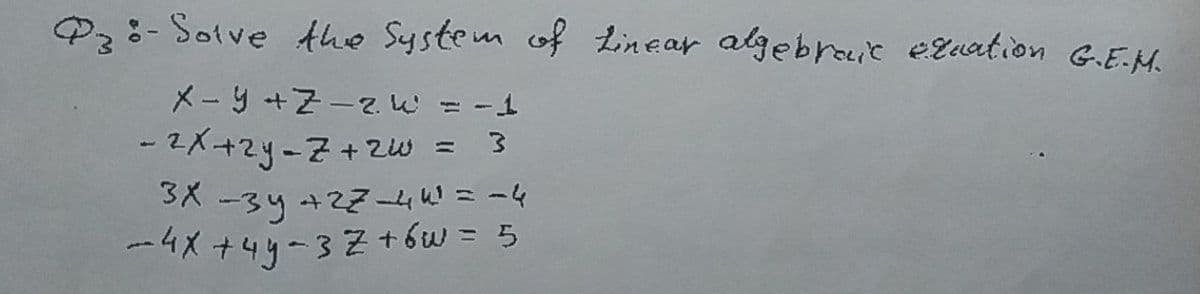 Q3 :- Solve the System of Linear algebraic equation G.E.M.
X - y + Z - 2.W = -1
- 2X + 2y - Z + 2W = 3
3X - 3y + 2Z - 4W = -4
- 4X + 4y - 3Z + 6W = 5